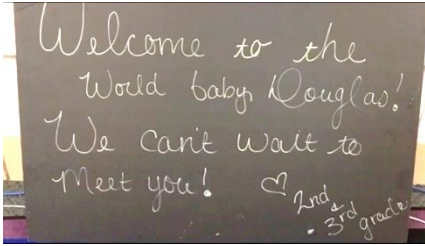 Welcome to the
World baby Douglas!
We can't wait to
Meet you! ♡ 2nd
& 3rd grade